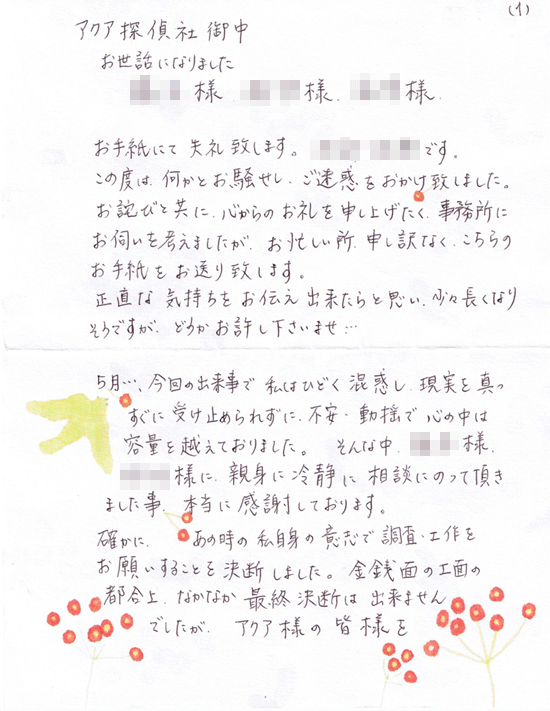 (1)
アクア探偵社御中
お世話になりました
様 様. 様.
お手紙にて失礼致します。 です。
この度は、何かとお騒せし、ご迷惑をおかけ致しました。
お詫びと共に、心からのお礼を申し上げたく、事務所に
お伺いを考えましたが、お忙しい所、申し訳なく、こちらの
お手紙をお送り致します。
正直な気持ちをお伝え出来たらと思い、少々長くなり
そうですが、どうかお許し下さいませ…
5月…、今回の出来事で私はひどく混惑し、現実を真っ
すぐに受け止められずに、不安・動揺で心の中は
容量を越えておりました。そんな中、 様.
様に、親身に冷静に相談にのって頂き
ました事、本当に感謝しております。
確かに、あの時の私自身の意志で調査・工作を
お願いすることを決断しました。金銭面の工面の
都合上、なかなか最終決断は出来ません
でしたが、アクア様の皆様を